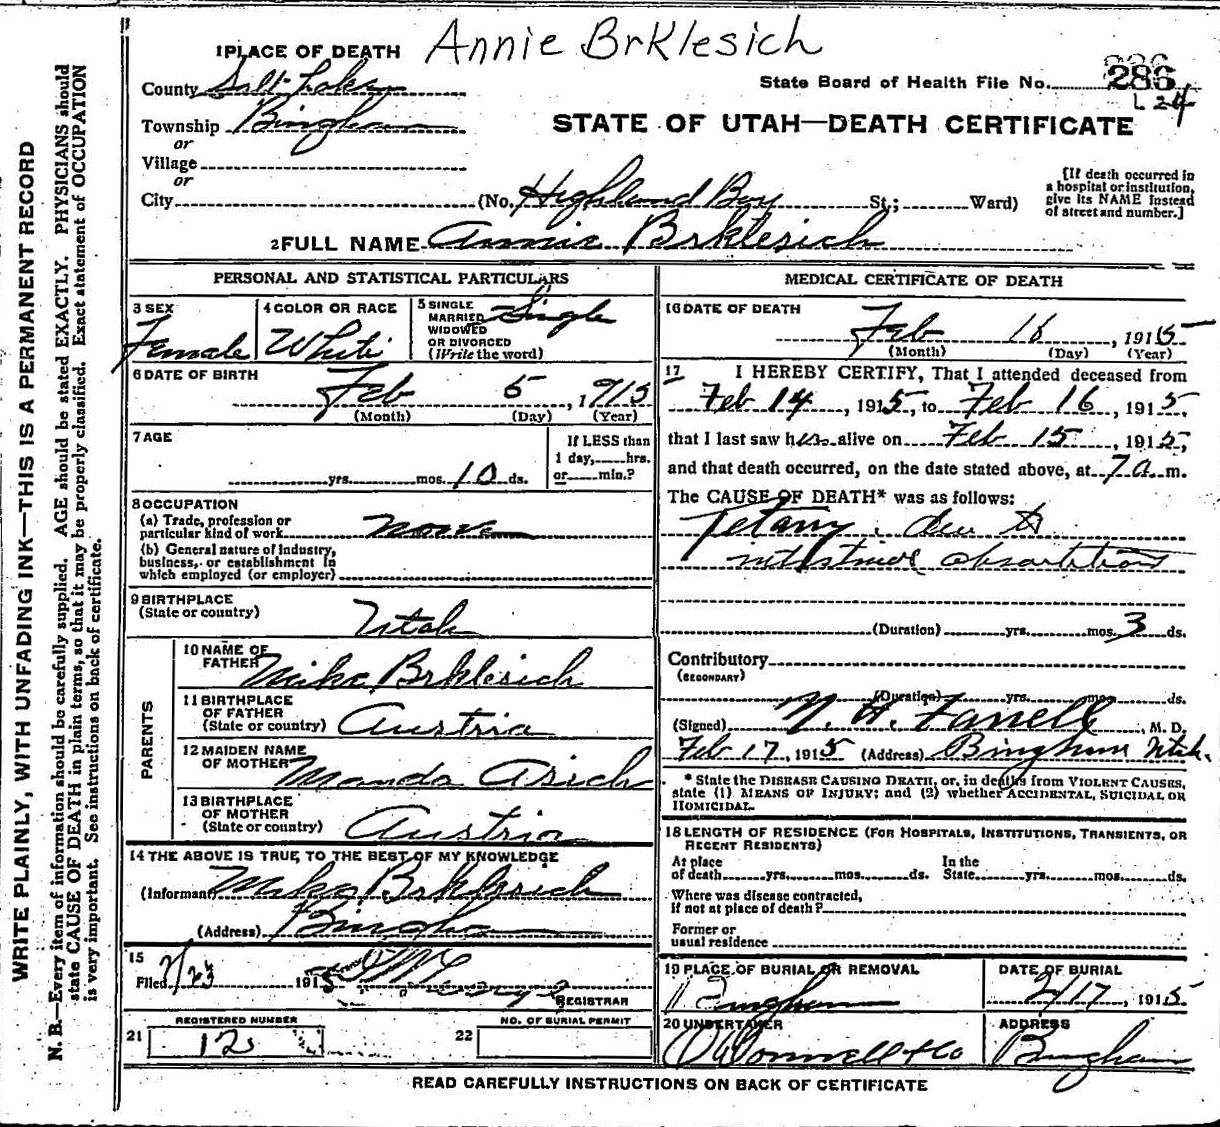 Annie Brklesich
1 PLACE OF DEATH
County Salt Lake
State Board of Health File No. 286
L 24
Township Bingham
or
STATE OF UTAH—DEATH CERTIFICATE
Village
or
City (No. Highland Boy St.; Ward)
[If death occurred in
a hospital or institution,
give its NAME instead
of street and number.]
2 FULL NAME Annie Brklesich
PERSONAL AND STATISTICAL PARTICULARS
3 SEX
Female
4 COLOR OR RACE
White
5 SINGLE
MARRIED
WIDOWED
OR DIVORCED
(Write the word)
Single
6 DATE OF BIRTH
Feb 5, 1915
(Month) (Day) (Year)
7 AGE
yrs. mos. 10 ds.
If LESS than
1 day, hrs.
or min.?
8 OCCUPATION
(a) Trade, profession or
particular kind of work none
(b) General nature of industry,
business, or establishment in
which employed (or employer)
9 BIRTHPLACE
(State or country)
Utah
PARENTS
10 NAME OF
FATHER
Mike Brklesich
11 BIRTHPLACE
OF FATHER
(State or country) Austria
12 MAIDEN NAME
OF MOTHER
Manda Asich
13 BIRTHPLACE
OF MOTHER
(State or country) Austria
14 THE ABOVE IS TRUE TO THE BEST OF MY KNOWLEDGE
(Informant) Mike Brklesich
(Address) Bingham
15
Filed 2/23 1915
REGISTRAR
REGISTERED NUMBER
21 12
NO. OF BURIAL PERMIT
22
MEDICAL CERTIFICATE OF DEATH
16 DATE OF DEATH
Feb 16, 1915
(Month) (Day) (Year)
17 I HEREBY CERTIFY, That I attended deceased from
Feb 14, 1915, to Feb 16, 1915,
that I last saw her alive on Feb 15, 1915,
and that death occurred, on the date stated above, at 7 a m.
The CAUSE OF DEATH* was as follows:
Tetany, due to
intestinal absorbtion
(Duration) yrs. mos. 3 ds.
Contributory
(SECONDARY)
(Duration) yrs. mos. ds.
(Signed) N. H. Farrell, M. D.
Feb 17, 1915 (Address) Bingham Utah.
* State the DISEASE CAUSING DEATH, or, in deaths from VIOLENT CAUSES,
state (1) MEANS OF INJURY; and (2) whether ACCIDENTAL, SUICIDAL OR
HOMICIDAL.
18 LENGTH OF RESIDENCE (FOR HOSPITALS, INSTITUTIONS, TRANSIENTS, OR
RECENT RESIDENTS)
At place
of death yrs. mos. ds.
In the
State yrs. mos. ds.
Where was disease contracted,
if not at place of death?
Former or
usual residence
19 PLACE OF BURIAL OR REMOVAL
Bingham
DATE OF BURIAL
2/17, 1915
20 UNDERTAKER
O'Donnell & Co
ADDRESS
Bingham
READ CAREFULLY INSTRUCTIONS ON BACK OF CERTIFICATE
WRITE PLAINLY, WITH UNFADING INK—THIS IS A PERMANENT RECORD
N. B.—Every item of information should be carefully supplied. AGE should be stated EXACTLY. PHYSICIANS should
state CAUSE OF DEATH in plain terms, so that it may be properly classified. Exact statement of OCCUPATION
is very important. See instructions on back of certificate.